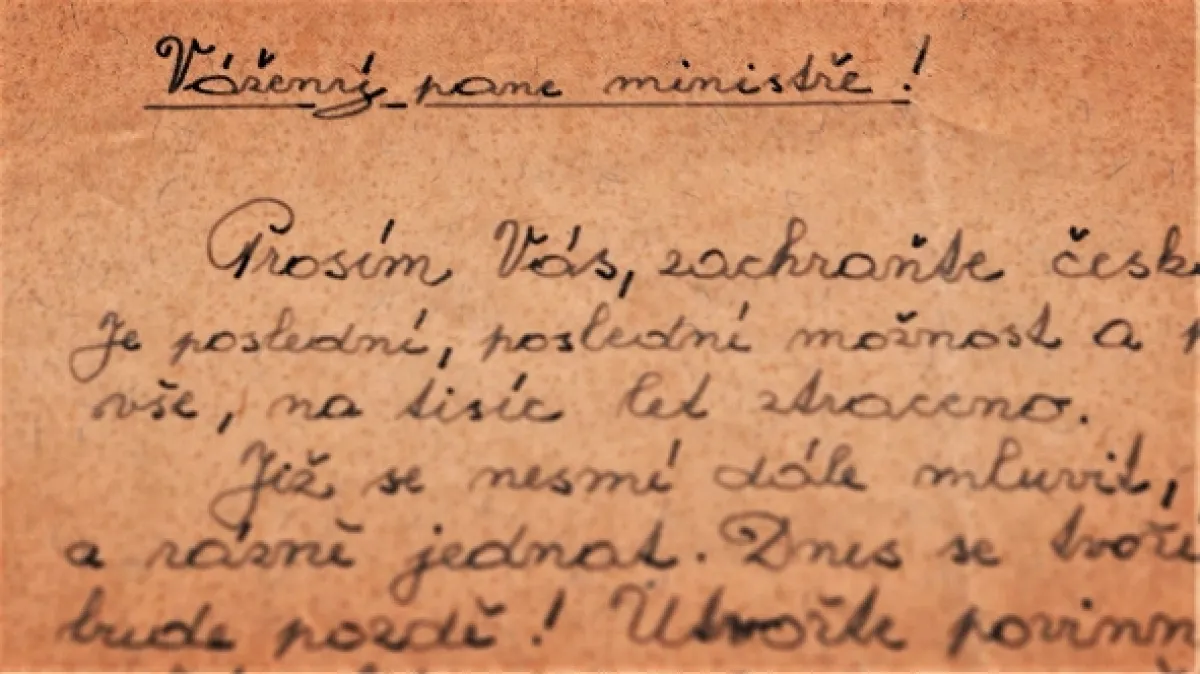 Vážený pane ministře!
Prosím Vás, zachraňte česk
Je poslední, poslední možnost a
vše, na tisíc let ztraceno.
Již se nesmí dále mluvit,
a rázně jednat. Dnes se tvoře
bude pozdě! Utvořte povinn